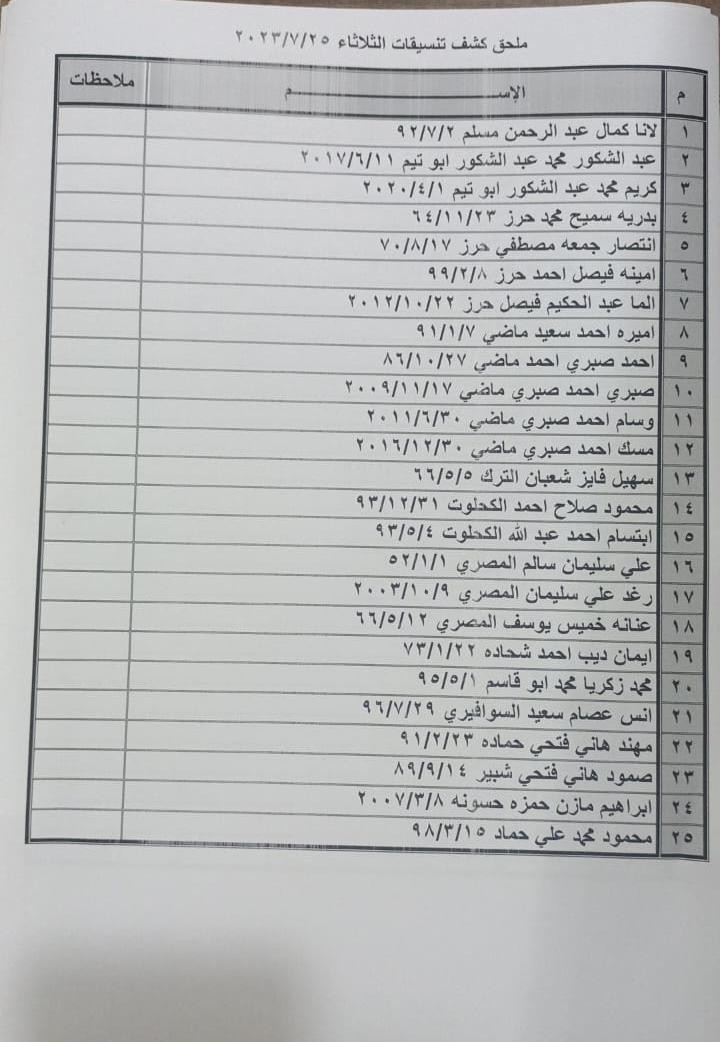 ملحق كشف تنسيقات الثلاثاء ٢٠٢٣/٧/٢٥
م الإســـــم ملاحظات
١ لانا كمال عبد الرحمن مسلم ٩٢/٧/٢
٢ عبد الشكور محمد عبد الشكور ابو تيم ٢٠١٧/٦/١١
٣ كريم محمد عبد الشكور ابو تيم ٢٠٢٠/٤/١
٤ بدريه سميح محمد حرز ٦٤/١١/٢٣
٥ انتصار جمعه مصطفي حرز ٧٠/٨/١٧
٦ امينه فيصل احمد حرز ٩٩/٢/٨
٧ الما عبد الحكيم فيصل حرز ٢٠١٢/١٠/٢٢
٨ اميره احمد سعيد ماضي ٩١/١/٧
٩ احمد صبري احمد ماضي ٨٦/١٠/٢٧
١٠ صبري احمد صبري ماضي ٢٠٠٩/١١/١٧
١١ وسام احمد صبري ماضي ٢٠١١/٦/٣٠
١٢ مسك احمد صبري ماضي ٢٠١٦/١٢/٣٠
١٣ سهيل فايز شعبان الترك ٦٦/٥/٥
١٤ محمود صلاح احمد الكحلوت ٩٣/١٢/٣١
١٥ ابتسام احمد عبد الله الكحلوت ٩٣/٥/٤
١٦ علي سليمان سالم المصري ٥٢/١/١
١٧ رغد علي سليمان المصري ٢٠٠٣/١٠/٩
١٨ عنانه خميس يوسف المصري ٦٦/٥/١٢
١٩ ايمان ديب احمد شحاده ٧٣/١/٢٢
٢٠ محمد زكريا محمد ابو قاسم ٩٥/٥/١
٢١ انس عصام سعيد السوافيري ٩٦/٧/٢٩
٢٢ مهند هاني فتحي حماده ٩١/٢/٢٣
٢٣ صمود هاني فتحي شبير ٨٩/٩/١٤
٢٤ ابراهيم مازن حمزه حسونه ٢٠٠٧/٣/٨
٢٥ محمود محمد علي حماد ٩٨/٣/١٥